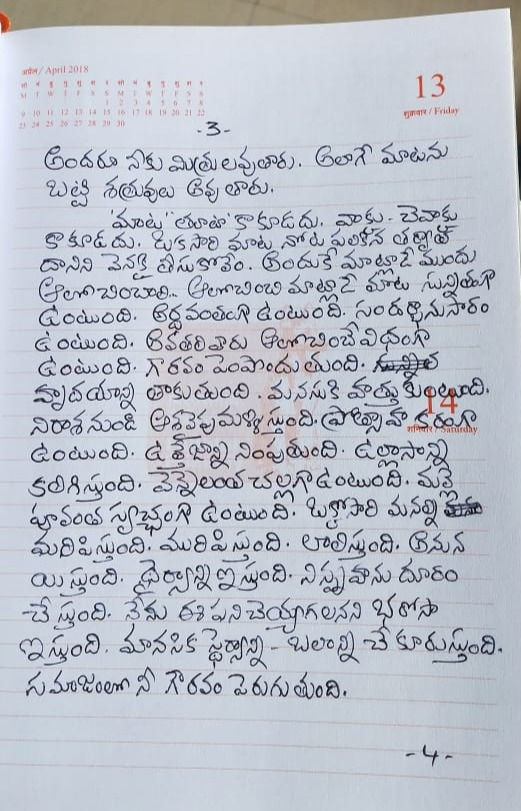 अप्रैल / April 2018
सो मं बु गु शु श र सो मं बु गु शु श र
M T W T F S S M T W T F S S
1 2 3 4 5 6 7 8
9 10 11 12 13 14 15 16 17 18 19 20 21 22
23 24 25 26 27 28 29 30
13
शुक्रवार / Friday
-3-
అందరూ నీకు మిత్రులవుతారు. అలాగే మాటను
బట్టి శత్రువులు అవుతారు.
'మాట' 'తూటా' కాకూడదు. వాకు - చెవాకు
కాకూడదు. ఒకసారి మాట నోట పలికిన తర్వాత
దానిని వెనక్కి తీసుకోలేం. అందుకే మాట్లాడే ముందు
ఆలోచించాలి. ఆలోచించి మాట్లాడే మాట సున్నితంగా
ఉంటుంది. అర్థవంతంగా ఉంటుంది. సందర్భానుసారం
ఉంటుంది. అవతలివారు ఆలోచించే విధంగా
ఉంటుంది. గౌరవం పెంపొందుతుంది.
హృదయాన్ని తాకుతుంది. మనసుకి హత్తుకుంటుంది.
14
నిరాశనుండి ఆశవైపు మళ్ళిస్తుంది. ప్రోత్సాహకరంగా
शनिवार / Saturday
ఉంటుంది. ఉత్తేజాన్ని నింపుతుంది. ఉల్లాసాన్ని
కలిగిస్తుంది. వెన్నెలంత చల్లగా ఉంటుంది. మల్లె
పూవంత స్వచ్ఛంగా ఉంటుంది. ఒక్కోసారి మనల్ని
మరిపిస్తుంది. మురిపిస్తుంది. లాలిస్తుంది. అనున
యిస్తుంది. ధైర్యాన్ని ఇస్తుంది. నిస్పృహను దూరం
చేస్తుంది. నేను ఈ పని చెయ్యగలనని భరోసా
ఇస్తుంది. మానసిక స్థైర్యాన్ని - బలాన్ని చేకూరుస్తుంది.
సమాజంలో నీ గౌరవం పెరుగుతుంది.
-4-